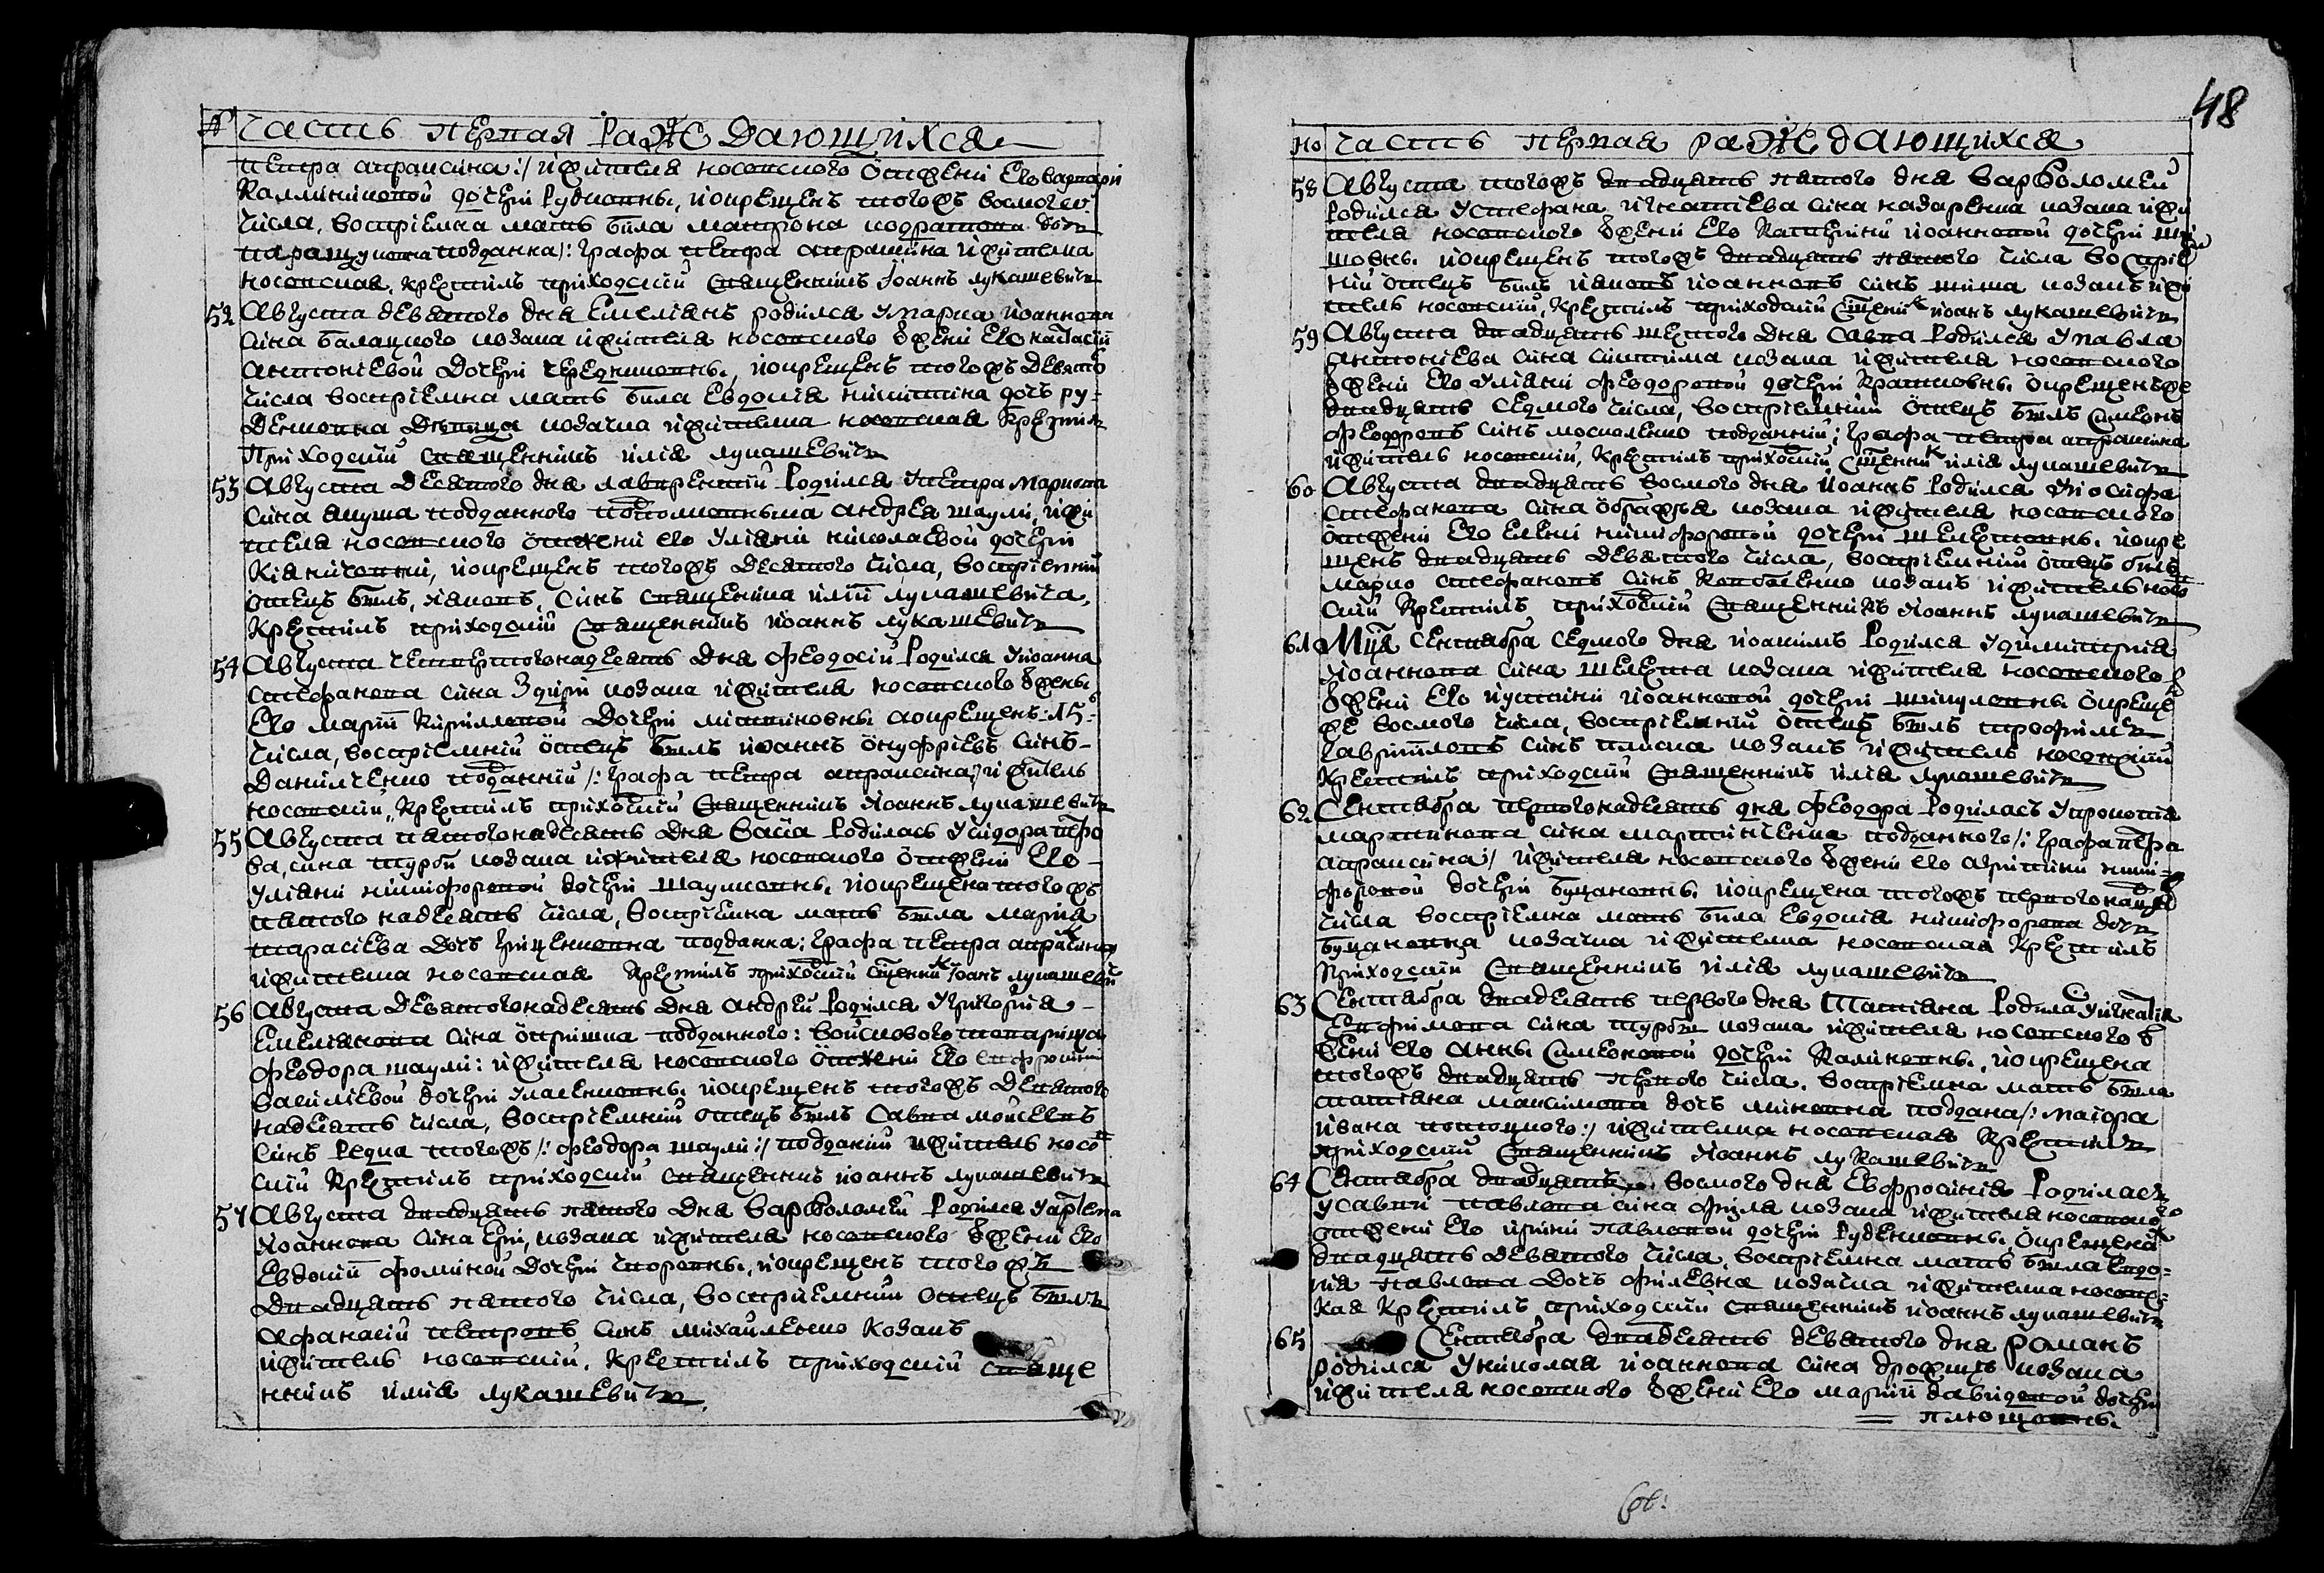 № Часть первая раждающихся
петра апраксина :/ ижителя носовского отжени его варвари
каллиниковой дочери Рудковны, иокрещенъ тогожъ восмого
числа, восприемка мать била матрона кодратова дочъ
паращуковна подданка /: графа петра апраксина жителка
носовская, крестилъ приходский священникъ Иоаннъ лукашевичъ
52 Августа девятого дня Емелианъ родился умарка иоаннова
сина балацкого козака ижителя носовского ꙋжени его настасии
антониевой дочери чередниковны, иокрещенъ тогожъ девято
числа восприемка мать била Евдокия никитина дочъ ру-
денковна козачка ижителка носовская крестилъ
Приходский священникъ илия лукашевичъ
53 Августа десятого дня лаврентий Родился упетра маркова
сина подданного андрея шаули, ижи
теля носовского отжени его улияни николаевой дочери
кияниченки, иокрещенъ тогожъ десятого числа, восприемний
отецъ билъ, яковъ, синъ священника илии лукашевича,
крестилъ приходский священникъ иоаннъ лукашевичъ
54 Августа четвертогонадесять дня феодосий Родился уиоанна
стефанова сина Здири козака ижителя носовского ꙋжены
его марии кирилловой дочери миткиковны аокрещенъ: 15:
числа, восприемний отецъ билъ иоаннъ онуфриевъ синъ-
данилченко подданний /: графа петра апраксина:/ ижитель
носовский, крестилъ приходский священникъ иоаннъ лукашевичъ
55 Августа пятогонадесять дня васса Родилась усидора петро
ва, сина турби козака ижителя носовского отжени его-
улияни никифоровой дочери шаулковны, иокрещена тогожъ
пятого надесять числа, восприемка мать била мария
тарасиева дочъ гриценковна подданка: графа петра апраксина
ижителка носовская крестилъ приходский сщеникъ Иоанъ лукашевич
56 Августа девятогонадесять дня андрей Родился угригория-
Емелианова сина подданного: войскового товарища
феодора шаули: ижителя носовского отжени его
василиевой дочери иокрещенъ тогожъ девятого
надесять числа, восприемний отецъ билъ савва мойсеевъ
синъ Редка тогожъ /: феодора шаули :/ подданий ижитель носов
ский крестилъ приходский священникъ иоаннъ лукашевичъ
57 Августа двадцать пятого дня варфоломей Родился уартема
иоаннова сина козака ижителя носовского ꙋжени его
Евдокии фоминой дочери иокрещенъ тогожъ
двадцать пятого числа, восприемний отецъ билъ
афанасий петровъ синъ михайленко козакъ
ижитель носовский, крестилъ приходский свяще
нникъ илия лукашевичъ.
48
№ Часть первая раждающихся
58 Августа тогожъ двадцать пятого дня варфоломей
Родился устефана игнатиева сина назаренка козака ижи
теля носовского ꙋжени его катерини иоанновой дочери
иокрещенъ тогожъ двадцать пятого числа восприем
ний отецъ билъ яковъ иоанновъ синъ козакъ ижи
тель носовский, крестилъ приходский сщеникъ иоанъ лукашевичъ
59 Августа двадцать шестого дня савва Родился упавла
антониева сина козака ижителя носовского
ꙋжени его улияни феодоровой дочери окрещенъже
двадцать седмого числа, восприемний отецъ билъ симеонъ
феодоровъ синъ москаленко подданний: графа петра апраксина
ижитель носовский, крестилъ приходский сщеникъ илия лукашевичъ
60 Августа двадцать восмого дня иоаннъ Родился уиосифа
стефанова сина козака ижителя носовского
отжени его елени никифоровой дочери иокре
щенъ двадцать девятого числа, восприемний отецъ билъ
марко стефановъ синъ козакъ ижитель носов
ский крестилъ приходский священникъ иоаннъ лукашевичъ
61 Мця сентября седмого дня иоакимъ Родился удимитрия
иоаннова сина козака ижителя носовского
ꙋжени его иустини иоанновой дочери окреще
же восмого числа, восприемний отецъ билъ трофимъ
гавриловъ синъ плиска козакъ ижитель носовский
крестилъ приходский священникъ илия лукашевичъ
62 Сентября первогонадесять дня феодора Родилась упрокопия
мартинова сина мартинченка подданного /: графа петра
апраксина :/ ижителя носовского ꙋжени его никифоровой дочери буцаковны иокрещена тогожъ первого
числа восприемка мать била Евдокия никифорова дочъ
буцаковна козачка ижителка носовская крестилъ
Приходский священникъ илия лукашевичъ
63 Сентября двадесять первого дня татиана Родилася уигнатия
Евфимова сина турби козака ижителя носовского ꙋ
жени его анны симеоновой дочери каликовны, иокрещена
тогожъ двадцать первого числа, восприемка мать била
татиана максимова дочъ подданка /: маиора
ивана :/ ижителка носовская крестилъ
приходский священникъ иоаннъ лукашевичъ
64 Сентября двадцать восмого дня Евфросиния Родилась
усавви павлова сина козака ижителя носовского
отжени его ирини павловой дочери руденковны, окрещена
двадцать девятого числа, восприемка мать била Евдо-
кия павлова дочъ козачка ижителка носовс-
кая крестилъ приходский священникъ иоаннъ лукашевичъ
65 Сентября двадесять девятого дня романъ
родился униколая иоаннова сина козака
ижителя носовского ꙋжени его марии давидовой дочери
плющовны.